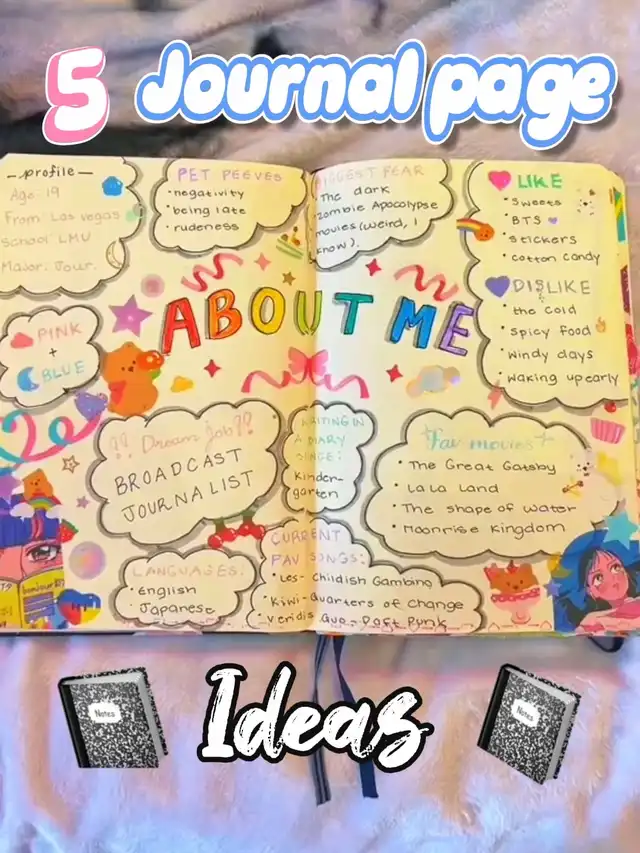 5 Journal page
-profile-
Age: 19
From: Las Vegas
School: LMU
Major: Jour.
PET PEEVES
• negativity
• being late
• rudeness
BIGGEST FEAR
The dark
zombie Apocalypse
movies (weird, I
know).
LIKE
• Sweets
• BTS
• stickers
• cotton candy
DISLIKE
• the cold
• spicy food
• windy days
• waking up early
PINK
+
BLUE
ABOUT ME
?? Dream Job??
BROADCAST
JOURNALIST
WRITING IN
A DIARY
SINCE:
Kinder-
garten
Fav movies
• The Great Gatsby
• La La Land
• The shape of water
• Moonrise Kingdom
LANGUAGES:
• English
• Japanese
CURRENT
FAV SONGS:
• Les- Childish Gambino
• Kiwi-Quarters of Change
• Veridis Quo-Daft Punk
bonjour
Ideas
Notes
Notes